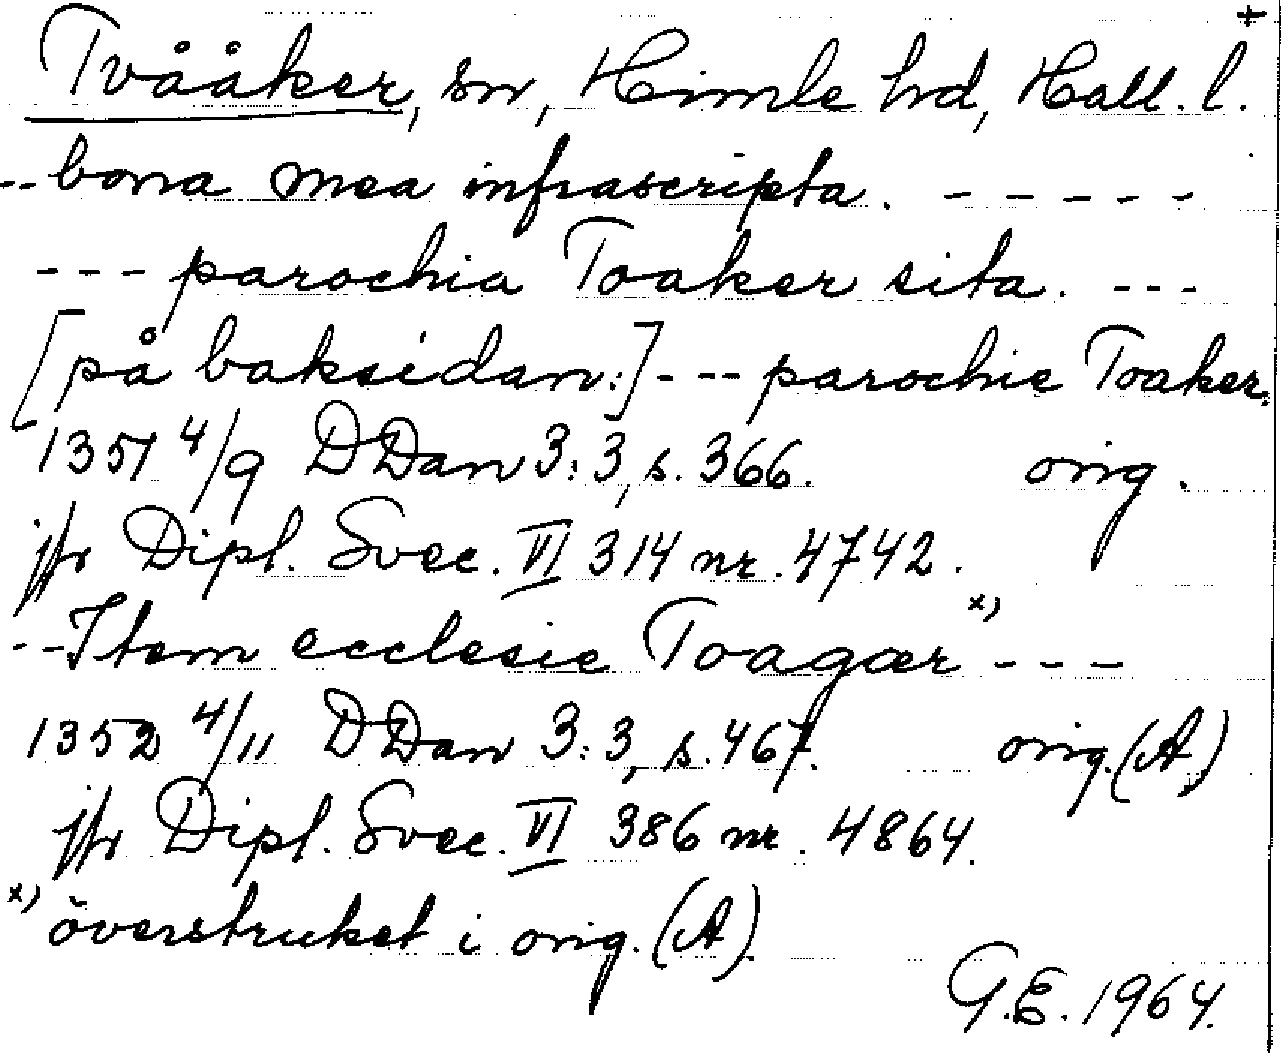 +
Tvååker, sn, Himle hd, Hall. l.
-- bona mea infrascripta. - - - - -
- - - parochia Toaker sita. - - -
[på baksidan:] - - - parochie Toaker.
1351 4/9 DDan 3:3, s. 366. orig.
jfr Dipl. Svec. VI 314 nr. 4742.
-- Item ecclesie Toagær x) - - -
1352 4/11 DDan 3:3, s. 467. orig. (A)
jfr Dipl. Svec. VI 386 nr. 4864.
x) överstruket i orig. (A).
G.E. 1964.